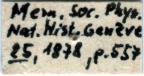 Mem. Soc. Phys.
Nat. Hist. Genève
25, 1878, p.557